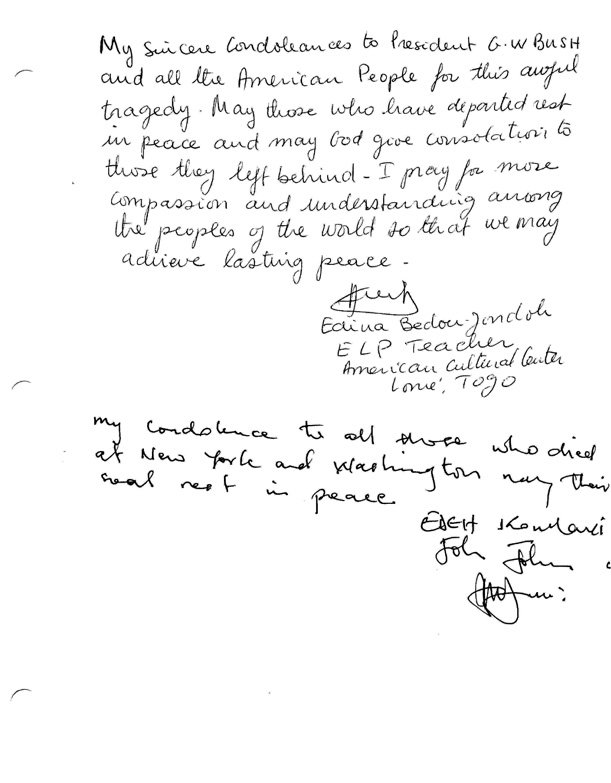 My Sincere Condoleances to President G.W BUSH
and all the American People for this awful
tragedy. May those who have departed rest
in peace and may God give consolation to
those they left behind - I pray for more
compassion and understanding among
the peoples of the world so that we may
achieve lasting peace -
Edina Bedou-
ELP Teacher
American Cultural Center
Lomé, TOGO
my condolence to all those who died
at New York and Washington may their
rest in peace
EDEH
John